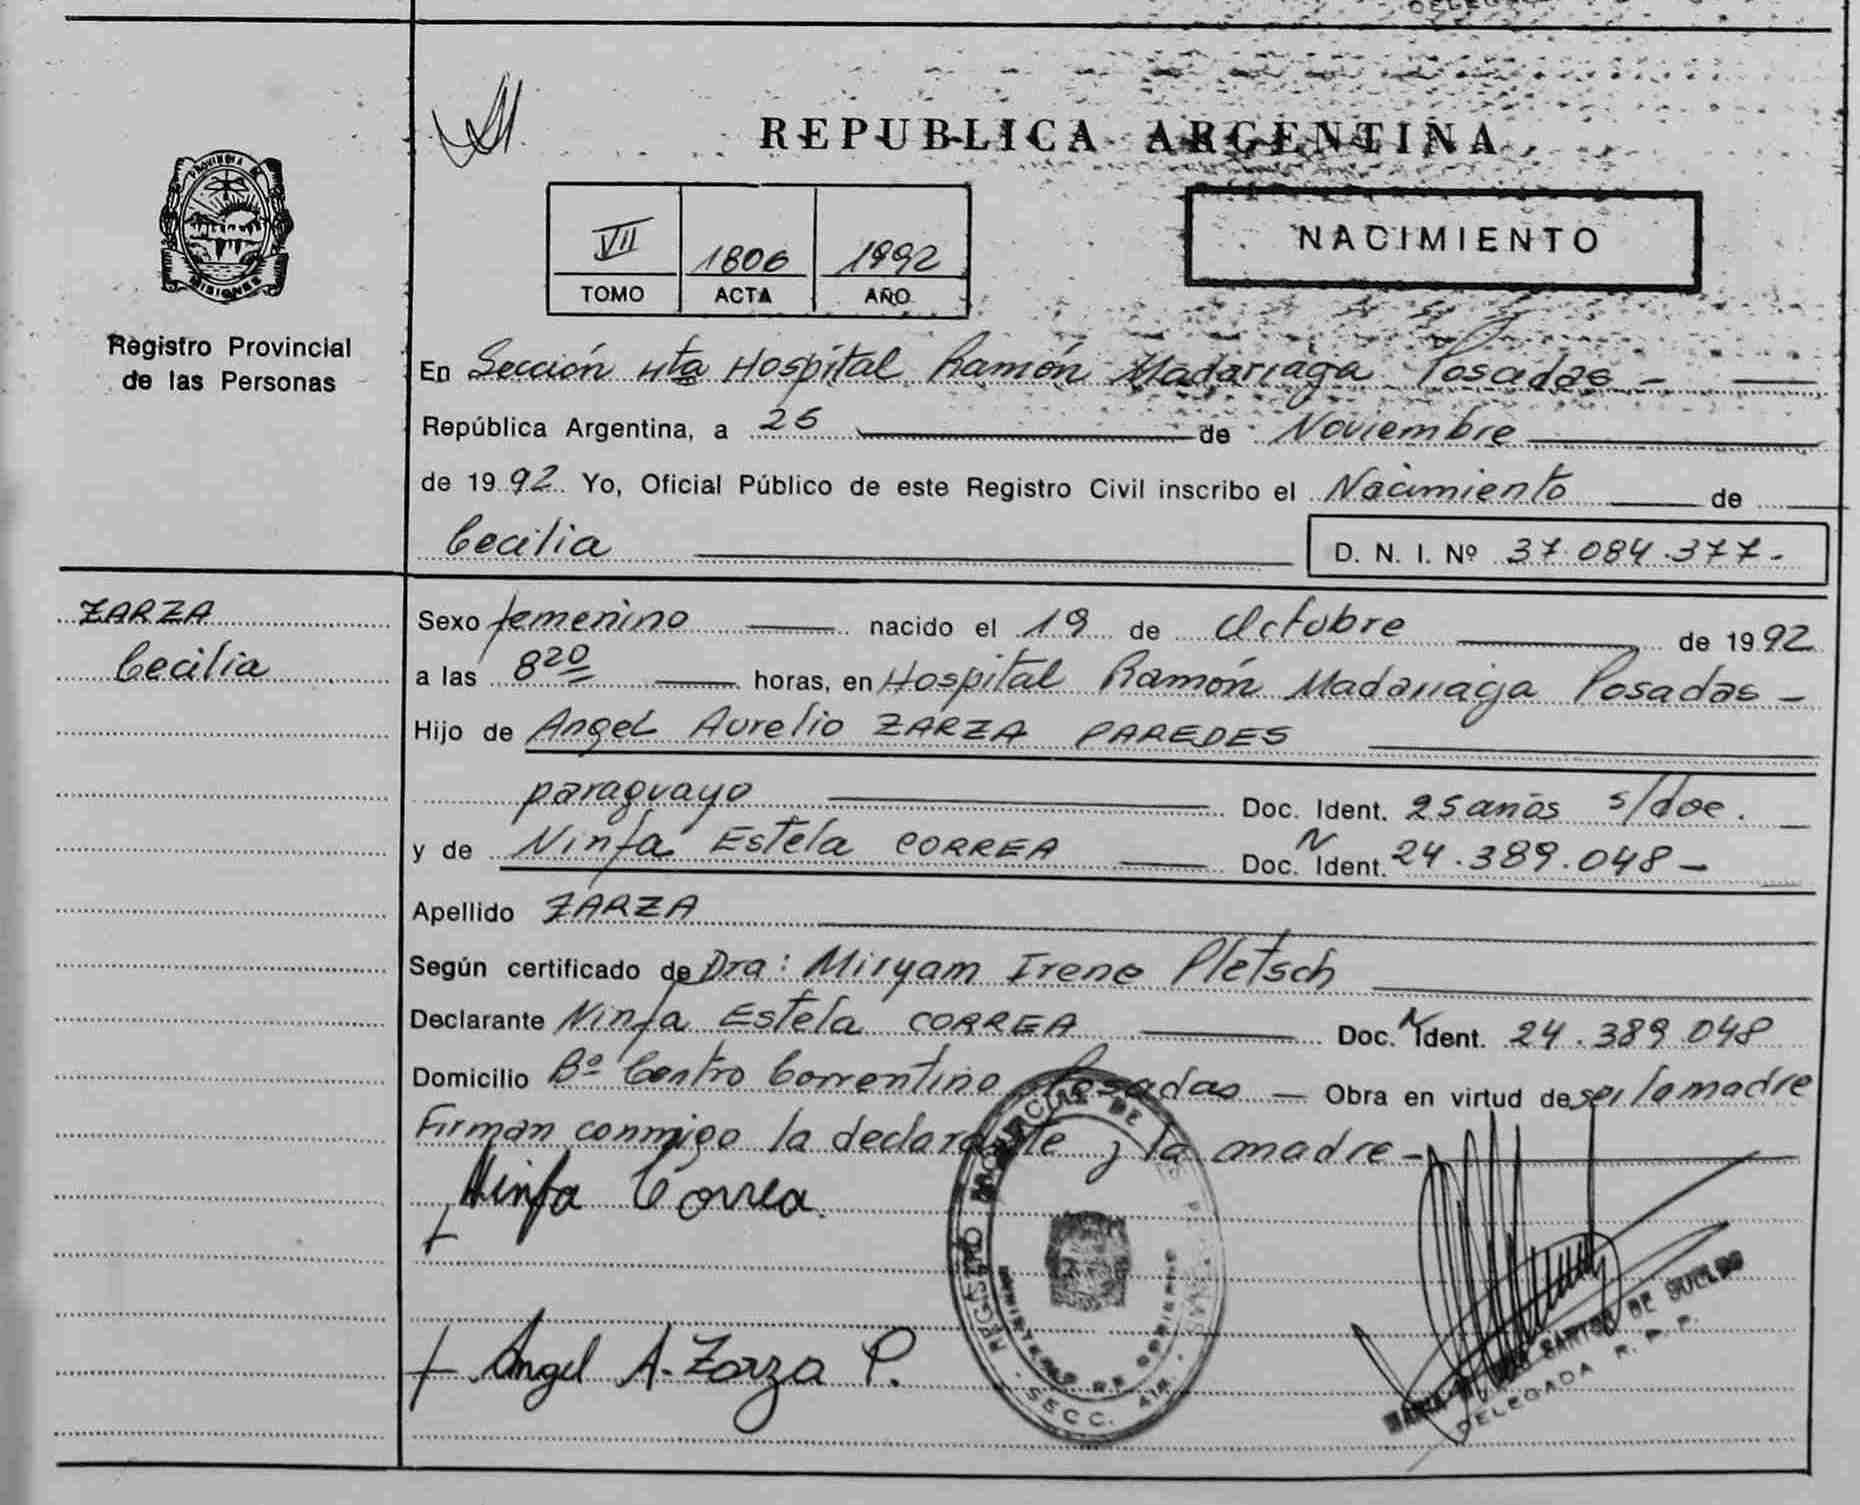 REPUBLICA ARGENTINA
PROVINCIA DE MISIONES
Registro Provincial
de las Personas
VII 1806 1992
TOMO ACTA AÑO
NACIMIENTO
En Sección 4ta Hospital Ramón Madariaga Posadas -
República Argentina, a 26 de Noviembre
de 1992 Yo, Oficial Público de este Registro Civil inscribo el Nacimiento de
Cecilia D. N. I. Nº 37.084.377.-
ZARZA
Cecilia
Sexo femenino nacido el 19 de Octubre de 1992
a las 8 20 horas, en Hospital Ramón Madariaga Posadas -
Hijo de Angel Aurelio ZARZA PAREDES
paraguayo Doc. Ident. 25 años s/doc.
y de Ninfa Estela CORREA Doc. N Ident. 24.389.048 -
Apellido ZARZA
Según certificado de Dra: Miryam Irene Pletsch
Declarante Ninfa Estela CORREA Doc. N Ident. 24.389.048
Domicilio Bº Centro Correntino Posadas - Obra en virtud de ser la madre
Firman conmigo la declarante y la madre -
Ninfa Correa.
Angel A. Zarza P.
REGISTRO PROVINCIAL DE
MINISTERIO DE GOBIERNO
SECC. 4ta
DE SUELDO
DELEGADA R. P. P.